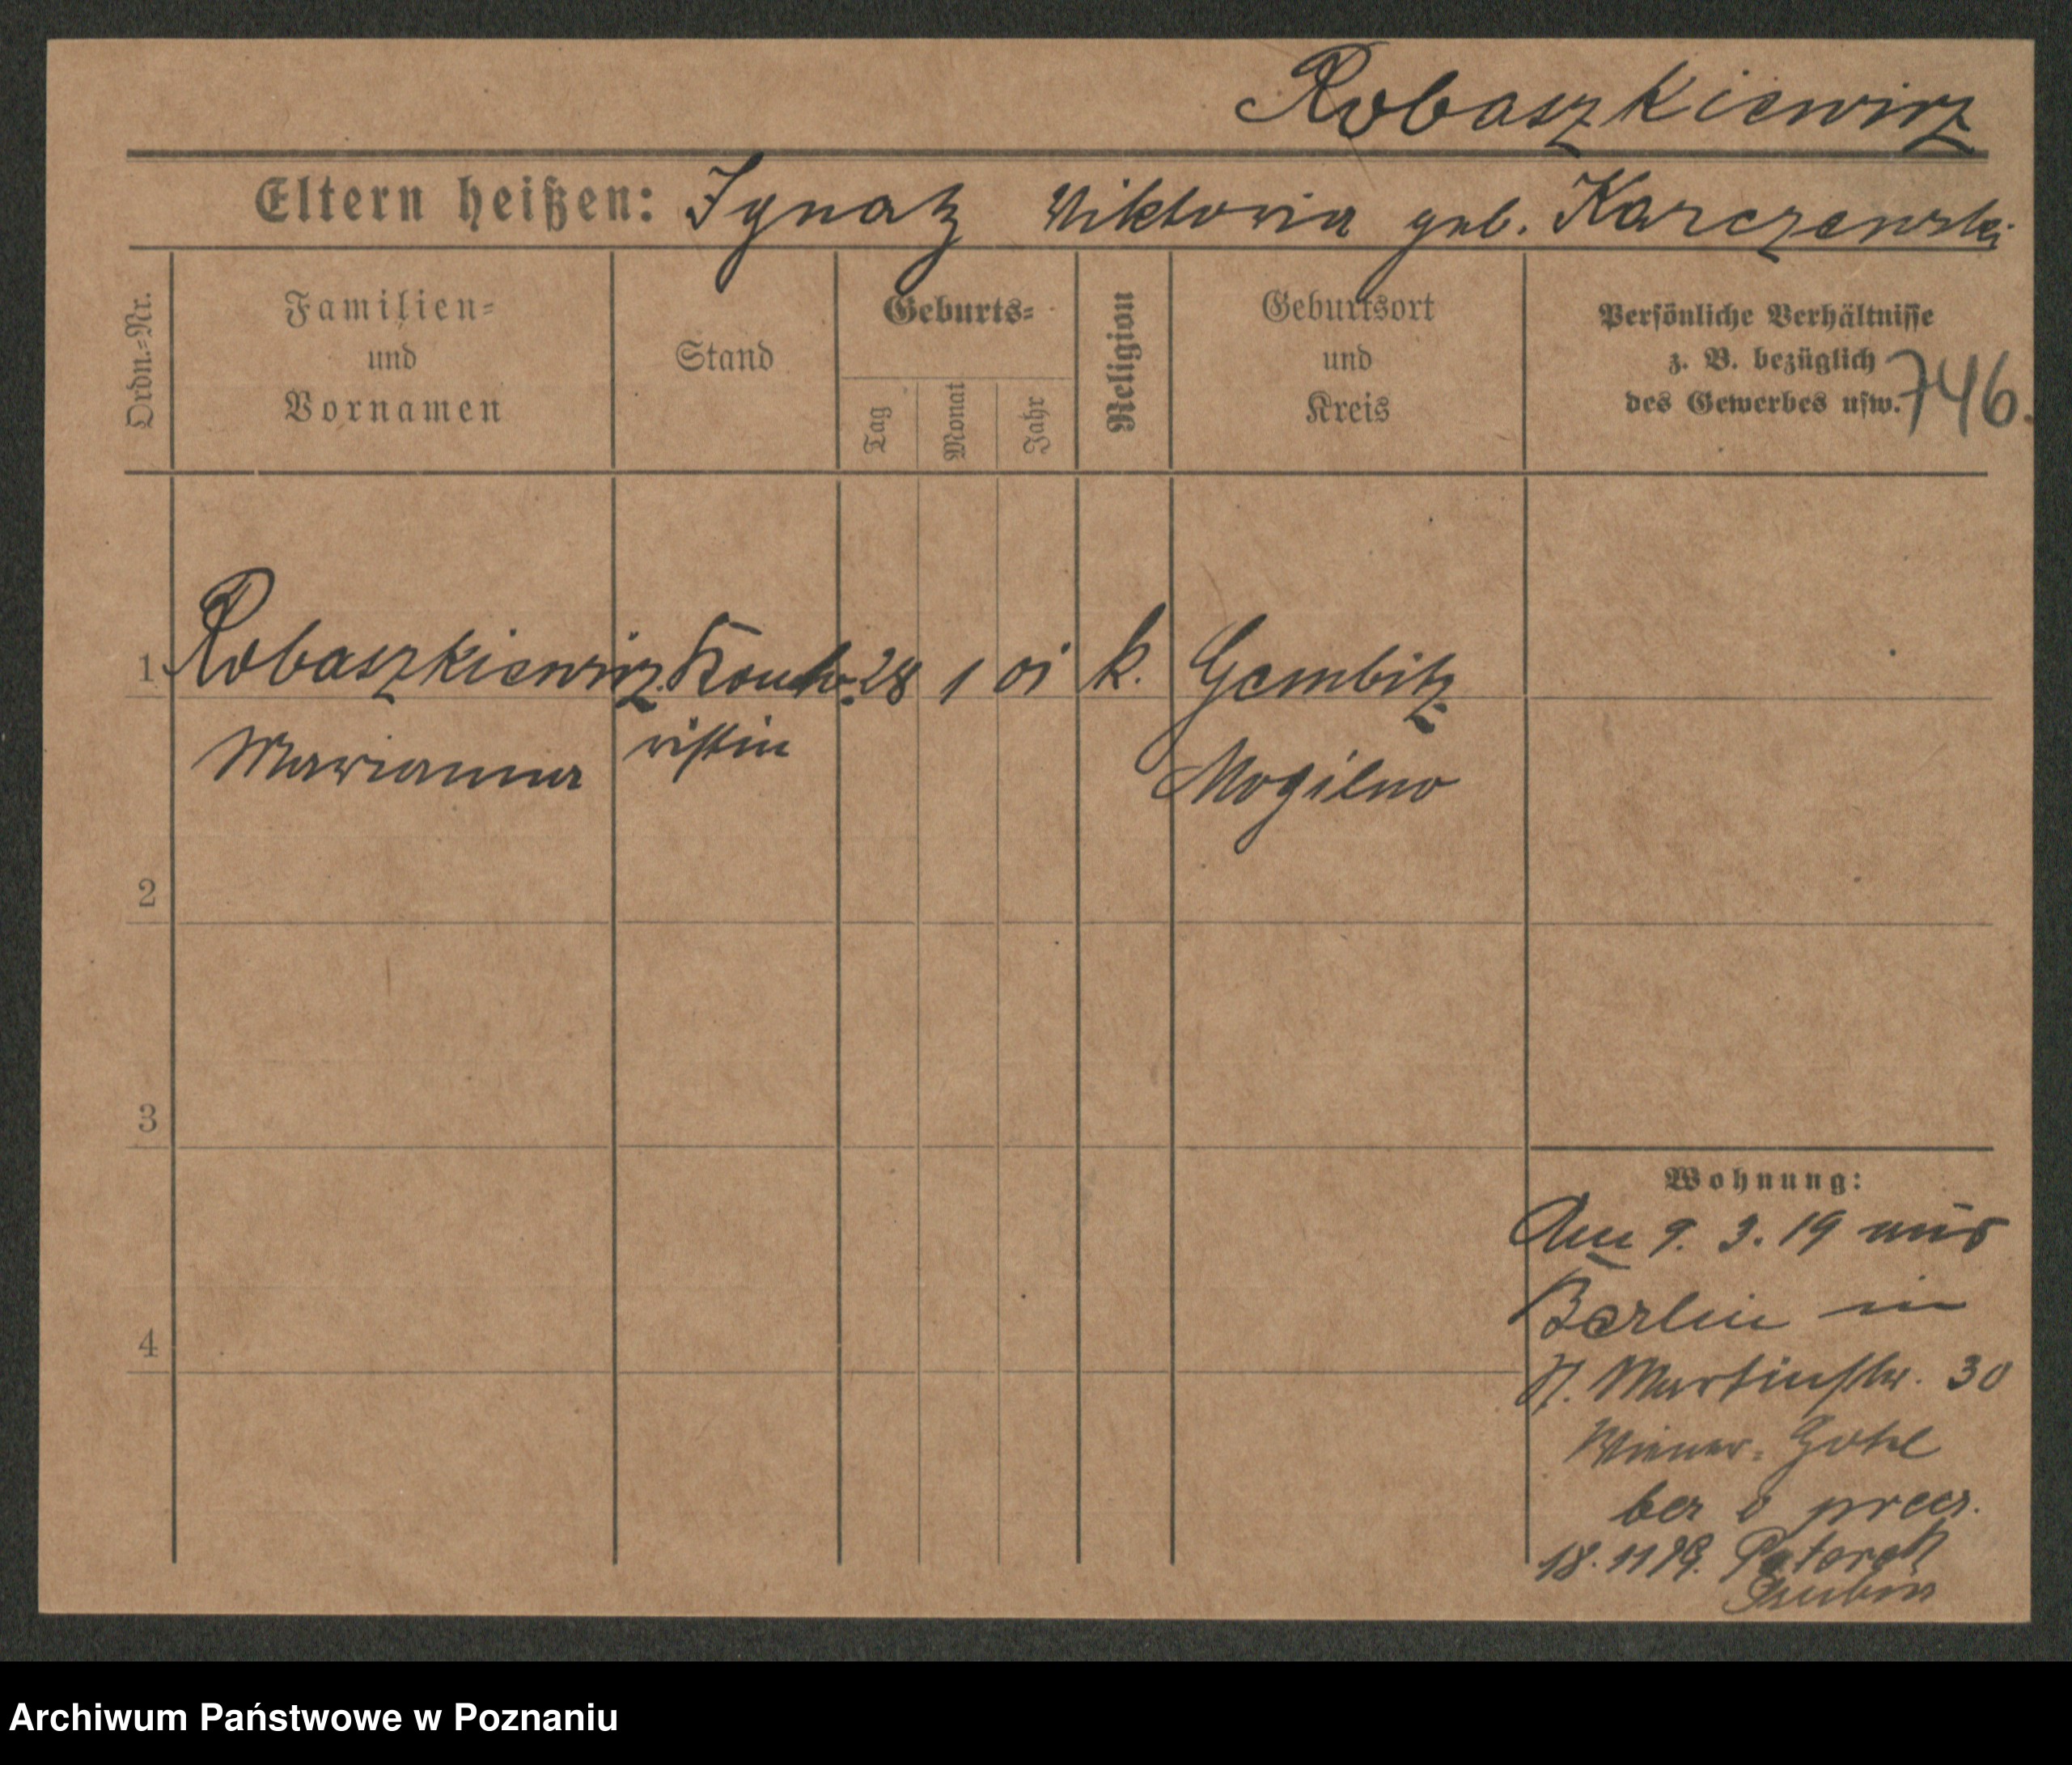 Robaszkiewicz
Eltern heißen: Ignatz Viktoria geb. Karczewski
Ordn.=Nr.
Familien=
und
Vornamen
Stand
Geburts=
Tag
Monat
Jahr
Religion
Geburtsort
und
Kreis
Persönliche Verhältnisse
z. B. bezüglich
des Gewerbes usw.
746.
1 Robaszkiewicz Konto- 28 1 01 k. Gembitz
Marianna ristin Mogilno
2
3
4
Wohnung:
Am 9. 3. 19 aus
Berlin in
St. Martinstr. 30
Wiener-
18. 11 19.
Archiwum Państwowe w Poznaniu